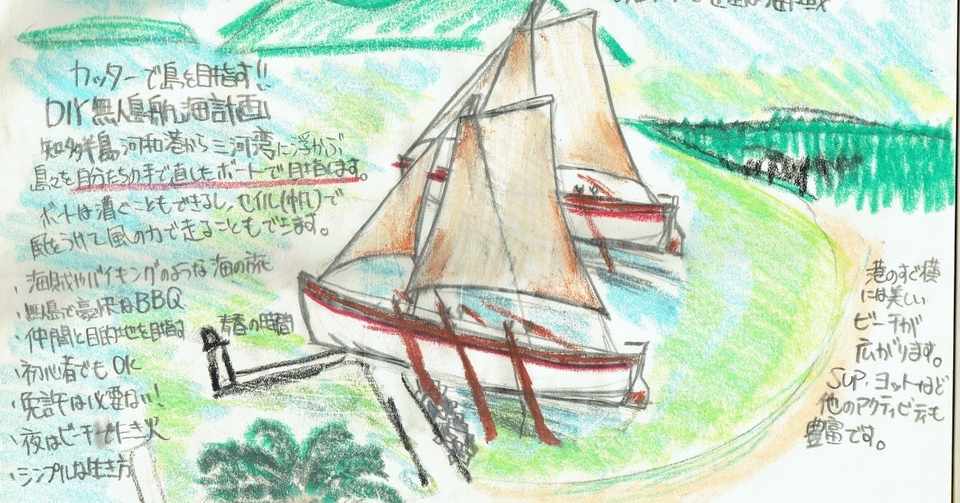 カッターで島を目指す!!
DIY無人島航海計画
知多半島河和港から三河湾に浮かぶ
島々を自分たちの手で直したボートで目指します。
ボートは漕ぐこともできるし、セイル(帆)で
風をうけて風の力で走ることもできます。
・海賊やバイキングのような海の旅
・無人島で豪快なBBQ
・仲間と目的地を目指す 青春の時間
・初心者でもOK
・免許は必要ない!
・夜はビーチでたき火
・シンプルな生き方
港のすぐ横
には美しい
ビーチが
広がります。
SUP・ヨットなど
他のアクティビティも
豊富です。